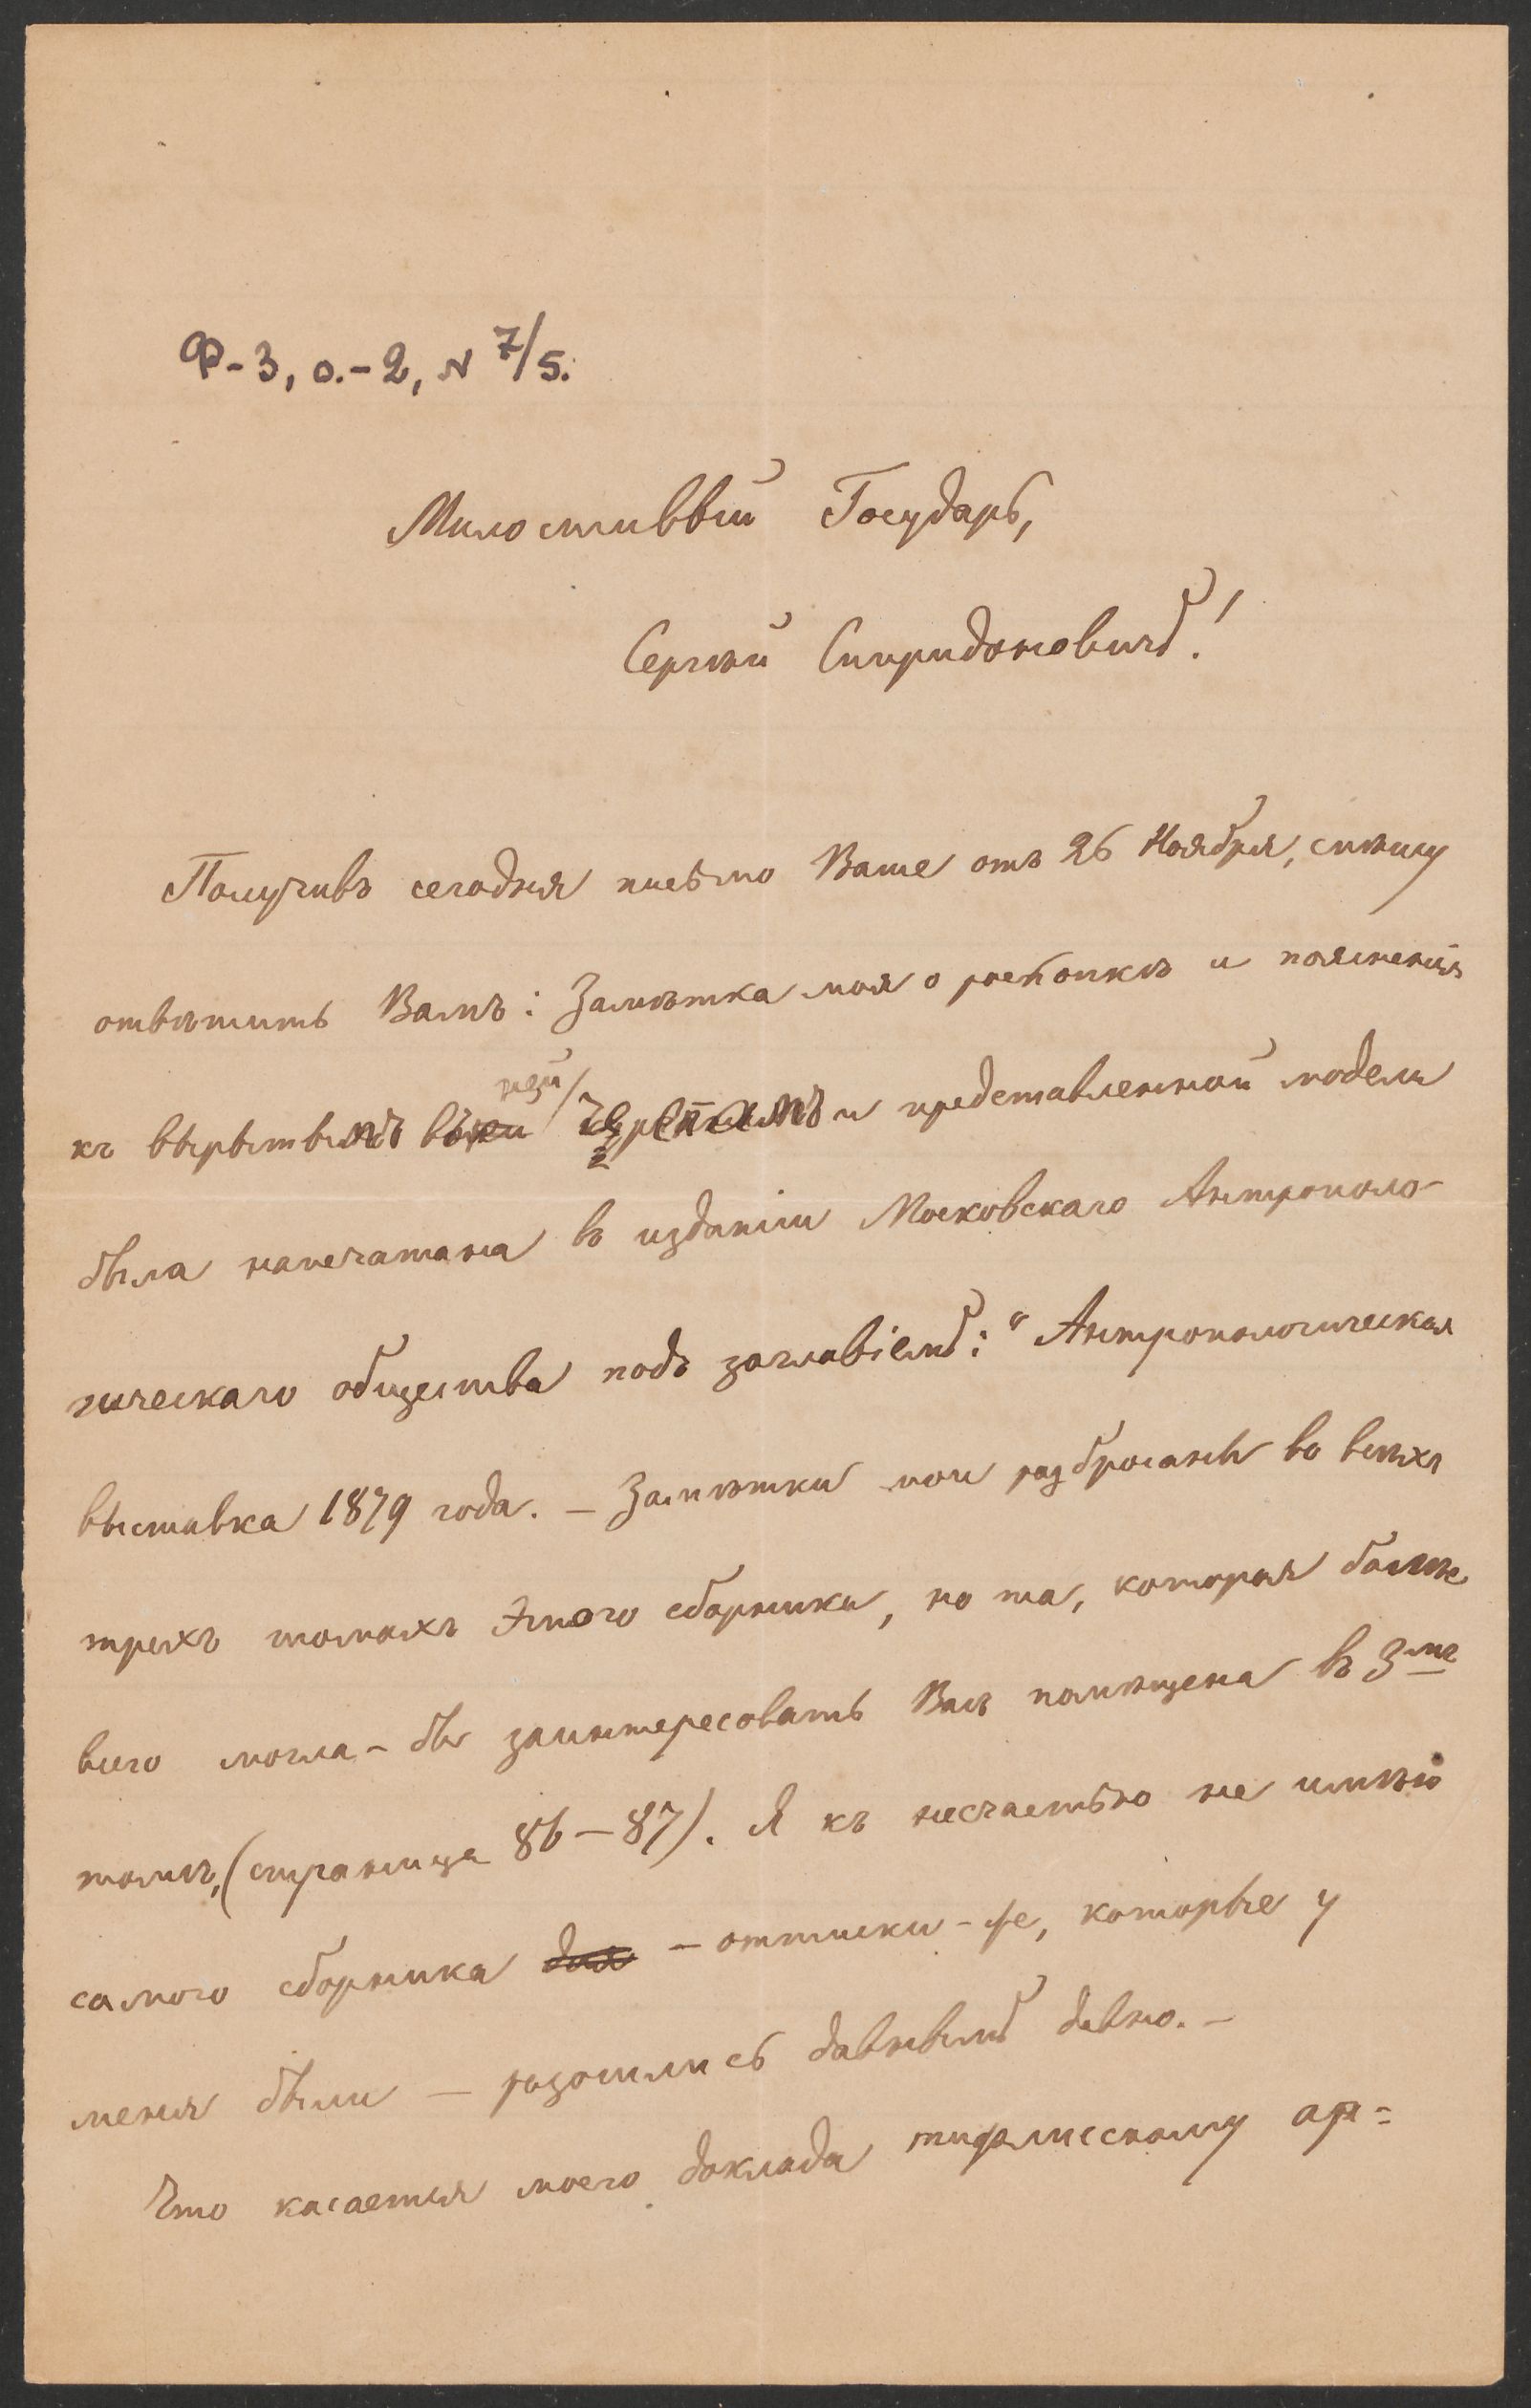 Ф-3, о.-2, N 7/5.
Милостивый Государь,
Сергѣй Спиридоновичъ!
Получивъ сегодня письмо Ваше отъ 26 Ноября, спѣшу
отвѣтить Вамъ: Замѣтка моя о раскопкѣ и поясненія
къ вырытымъ въ ней черепамъ и представленной модели
была напечатана въ изданіи Московскаго Антрополо-
гическаго общества подъ заглавіемъ: "Антропологическая
выставка 1879 года. — Замѣтки мои разбросаны во всѣхъ
трехъ томахъ этого сборника, но та, которая болѣе
всего могла-бы заинтересовать Васъ помѣщена въ 3мъ
томѣ, (страница 86—87). Я къ несчастью не имѣю
самого сборника — оттиски-же, которые у
меня были — разошлись давнымъ давно. —
Что касается моего доклада тифлисскому ар=